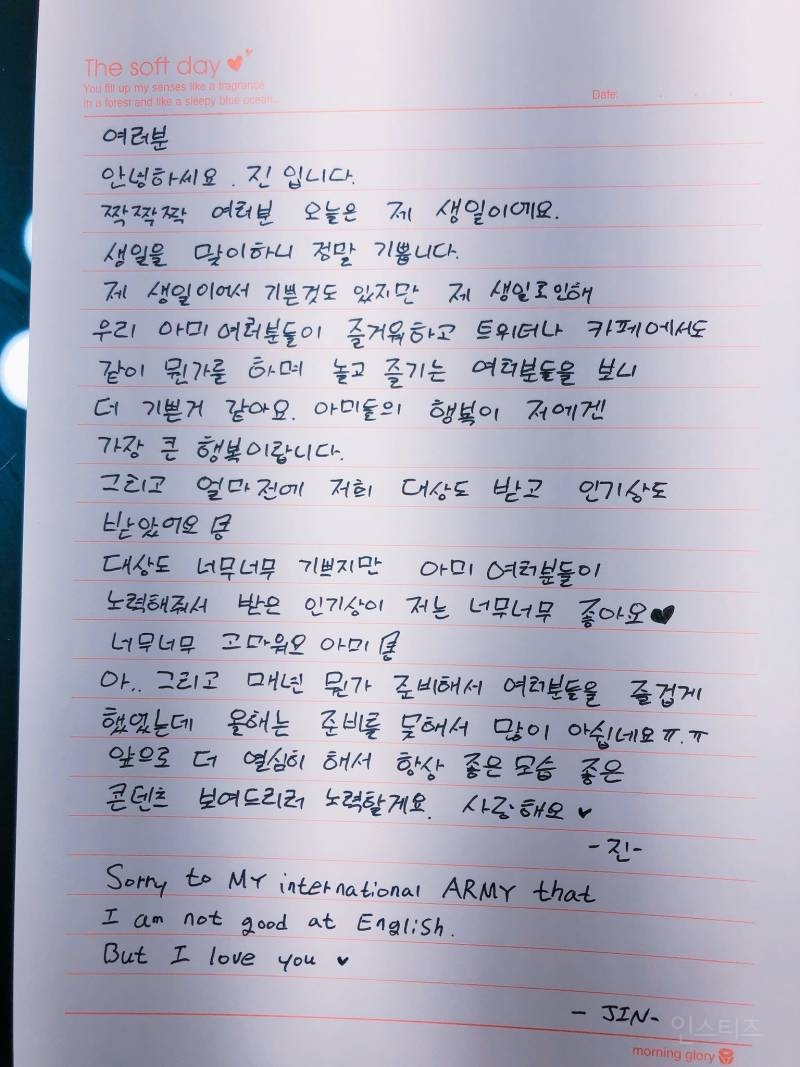 The soft day
You fill up my senses like a fragrance
in a forest and like a sleepy blue ocean...
Date:
여러분
안녕하세요. 진 입니다.
짝짝짝 여러분 오늘은 제 생일이에요.
생일을 맞이하니 정말 기쁩니다.
제 생일이어서 기쁜것도 있지만 제 생일로인해
우리 아미여러분들이 즐거워하고 트위터나 카페에서도
같이 뭔가를 하며 놀고 즐기는 여러분들을 보니
더 기쁜거 같아요. 아미들의 행복이 저에겐
가장 큰 행복이랍니다.
그리고 얼마전에 저희 대상도 받고 인기상도
받았어요
대상도 너무너무 기쁘지만 아미 여러분들이
노력해줘서 받은 인기상이 저는 너무너무 좋아요♥
너무너무 고마워요 아미
아.. 그리고 매년 뭔가 준비해서 여러분들을 즐겁게
했었는데 올해는 준비를 못해서 많이 아쉽네요ㅠ.ㅠ
앞으로 더 열심히 해서 항상 좋은모습 좋은
콘텐츠 보여드리러 노력할게요. 사랑해요 ♥
-진-
Sorry to MY international ARMY that
I am not good at English.
But I love you ♥
- JIN-
인스티즈
morning glory